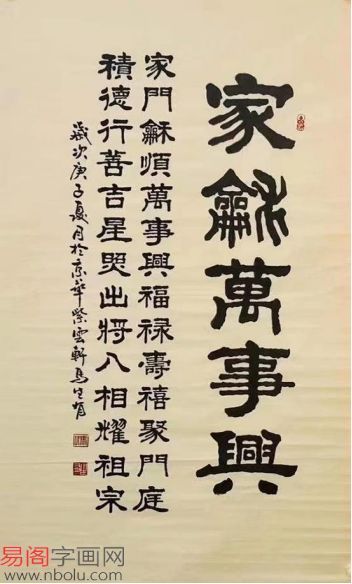 家龢萬事興
家門龢順萬事興福禄壽禧聚門庭
積德行善吉星照出將入相耀祖宗
歲次庚子夏月於京華紫雲軒馬
易阁字画网
www.nbolu.com